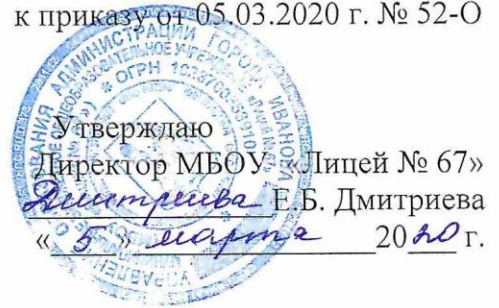 к приказу от 05.03.2020 г. № 52-О
Утверждаю
Директор МБОУ «Лицей № 67»
Дмитриева Е.Б. Дмитриева
«5» марта 2020 г.
АДМИНИСТРАЦИИ ГОРОДА ИВАНОВА
ОГРН